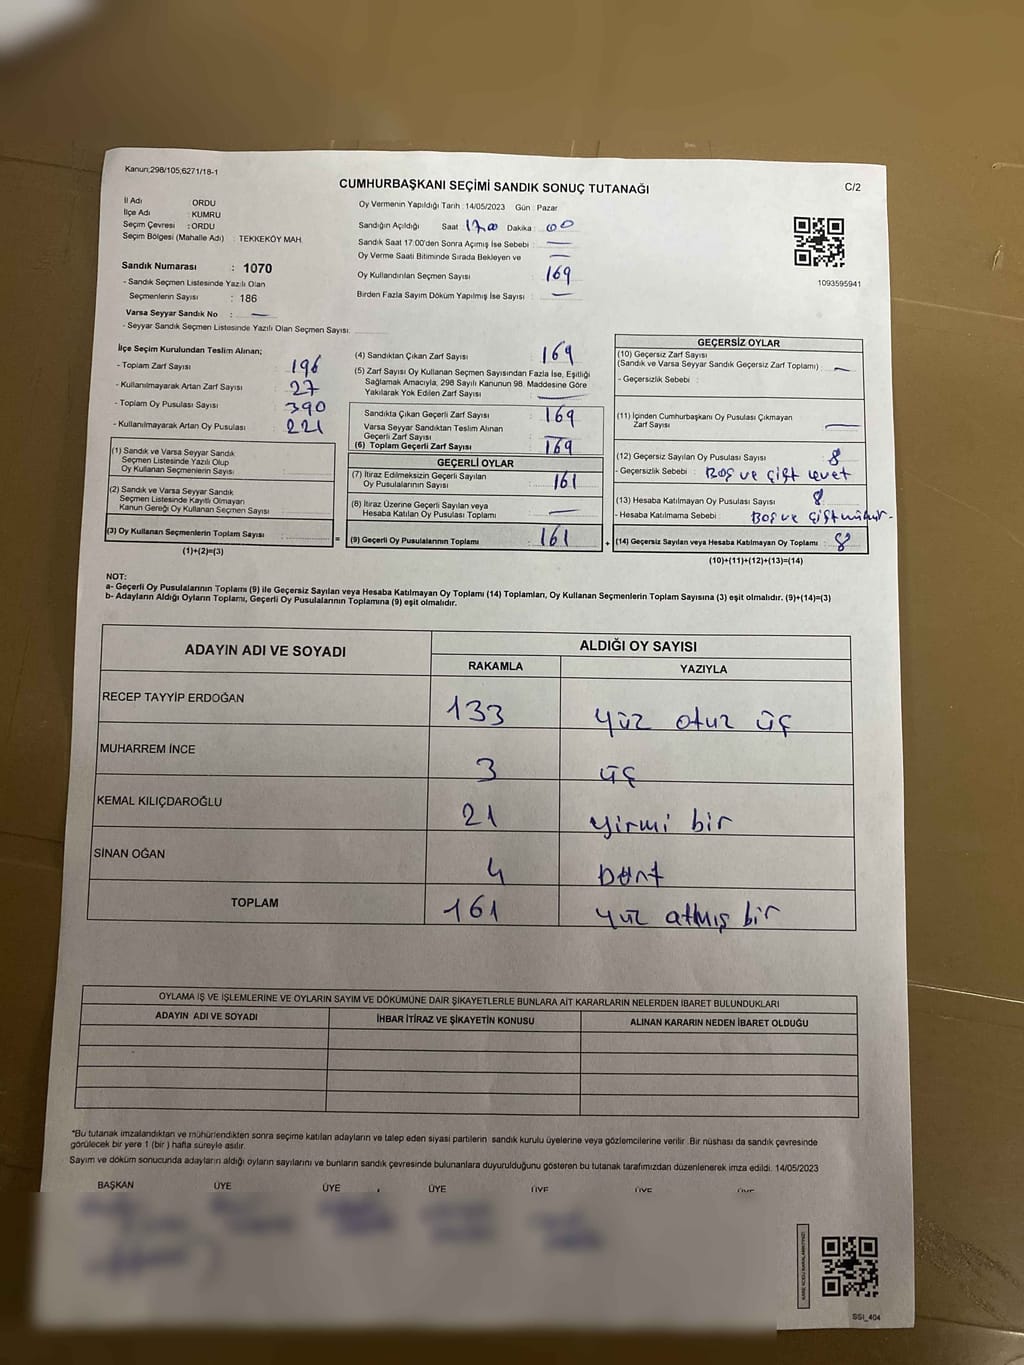 Kanun;298/105;6271/18-1
CUMHURBAŞKANI SEÇİMİ SANDIK SONUÇ TUTANAĞI
C/2
İl Adı : ORDU
İlçe Adı : KUMRU
Seçim Çevresi : ORDU
Seçim Bölgesi (Mahalle Adı) : TEKKEKÖY MAH.
Sandık Numarası : 1070
- Sandık Seçmen Listesinde Yazılı Olan
Seçmenlerin Sayısı : 186
Varsa Seyyar Sandık No : —
- Seyyar Sandık Seçmen Listesinde Yazılı Olan Seçmen Sayısı:
Oy Vermenin Yapıldığı Tarih : 14/05/2023 Gün : Pazar
Sandığın Açıldığı Saat 17.00 Dakika : 00
Sandık Saat 17:00'den Sonra Açımış İse Sebebi : —
Oy Verme Saati Bitiminde Sırada Bekleyen ve —
Oy Kullandırılan Seçmen Sayısı : 169
Birden Fazla Sayım Döküm Yapılmış İse Sayısı : —
1093595941
İlçe Seçim Kurulundan Teslim Alınan;
- Toplam Zarf Sayısı 196
- Kullanılmayarak Artan Zarf Sayısı 27
- Toplam Oy Pusulası Sayısı 390
- Kullanılmayarak Artan Oy Pusulası 221
(1) Sandık ve Varsa Seyyar Sandık
Seçmen Listesinde Yazılı Olup
Oy Kullanan Seçmenlerin Sayısı
(2) Sandık ve Varsa Seyyar Sandık
Seçmen Listesinde Kayıtlı Olmayan
Kanun Gereği Oy Kullanan Seçmen Sayısı
(3) Oy Kullanan Seçmenlerin Toplam Sayısı =
(1)+(2)=(3)
(4) Sandıktan Çıkan Zarf Sayısı 169
(5) Zarf Sayısı Oy Kullanan Seçmen Sayısından Fazla İse, Eşitliği
Sağlamak Amacıyla, 298 Sayılı Kanunun 98. Maddesine Göre
Yakılarak Yok Edilen Zarf Sayısı : —
Sandıkta Çıkan Geçerli Zarf Sayısı 169
Varsa Seyyar Sandıktan Teslim Alınan
Geçerli Zarf Sayısı —
(6) Toplam Geçerli Zarf Sayısı 169
GEÇERLİ OYLAR
(7) İtiraz Edilmeksizin Geçerli Sayılan
Oy Pusulalarının Sayısı 161
(8) İtiraz Üzerine Geçerli Sayılan veya
Hesaba Katılan Oy Pusulası Toplamı —
(9) Geçerli Oy Pusulalarının Toplamı 161 +
GEÇERSİZ OYLAR
(10) Geçersiz Zarf Sayısı
(Sandık ve Varsa Seyyar Sandık Geçersiz Zarf Toplamı) : —
- Geçersizlik Sebebi :
(11) İçinden Cumhurbaşkanı Oy Pusulası Çıkmayan
Zarf Sayısı —
(12) Geçersiz Sayılan Oy Pusulası Sayısı 8
- Geçersizlik Sebebi : Boş ve çift evet
(13) Hesaba Katılmayan Oy Pusulası Sayısı 8
- Hesaba Katılmama Sebebi : Boş ve çift mühür-
(14) Geçersiz Sayılan veya Hesaba Katılmayan Oy Toplamı : 8
(10)+(11)+(12)+(13)=(14)
NOT:
a- Geçerli Oy Pusulalarının Toplamı (9) ile Geçersiz Sayılan veya Hesaba Katılmayan Oy Toplamı (14) Toplamları, Oy Kullanan Seçmenlerin Toplam Sayısına (3) eşit olmalıdır. (9)+(14)=(3)
b- Adayların Aldığı Oyların Toplamı, Geçerli Oy Pusulalarının Toplamına (9) eşit olmalıdır.
ADAYIN ADI VE SOYADI ALDIĞI OY SAYISI
RAKAMLA YAZIYLA
RECEP TAYYİP ERDOĞAN 133 yüz otuz üç
MUHARREM İNCE 3 üç
KEMAL KILIÇDAROĞLU 21 yirmi bir
SİNAN OĞAN 4 dört
TOPLAM 161 yüz atmış bir
OYLAMA İŞ VE İŞLEMLERİNE VE OYLARIN SAYIM VE DÖKÜMÜNE DAİR ŞİKAYETLERLE BUNLARA AİT KARARLARIN NELERDEN İBARET BULUNDUKLARI
ADAYIN ADI VE SOYADI İHBAR İTİRAZ VE ŞİKAYETİN KONUSU ALINAN KARARIN NEDEN İBARET OLDUĞU
*Bu tutanak imzalandıktan ve mühürlendikten sonra seçime katılan adayların ve talep eden siyasi partilerin sandık kurulu üyelerine veya gözlemcilerine verilir. Bir nüshası da sandık çevresinde
görülecek bir yere 1 (bir ) hafta süreyle asılır.
Sayım ve döküm sonucunda adayların aldığı oyların sayılarını ve bunların sandık çevresinde bulunanlara duyurulduğunu gösteren bu tutanak tarafımızdan düzenlenerek imza edildi. 14/05/2023
BAŞKAN ÜYE ÜYE ÜYE ÜYE ÜYE ÜYE
KARE KODU KARALAMAYINIZ!
SSI_404